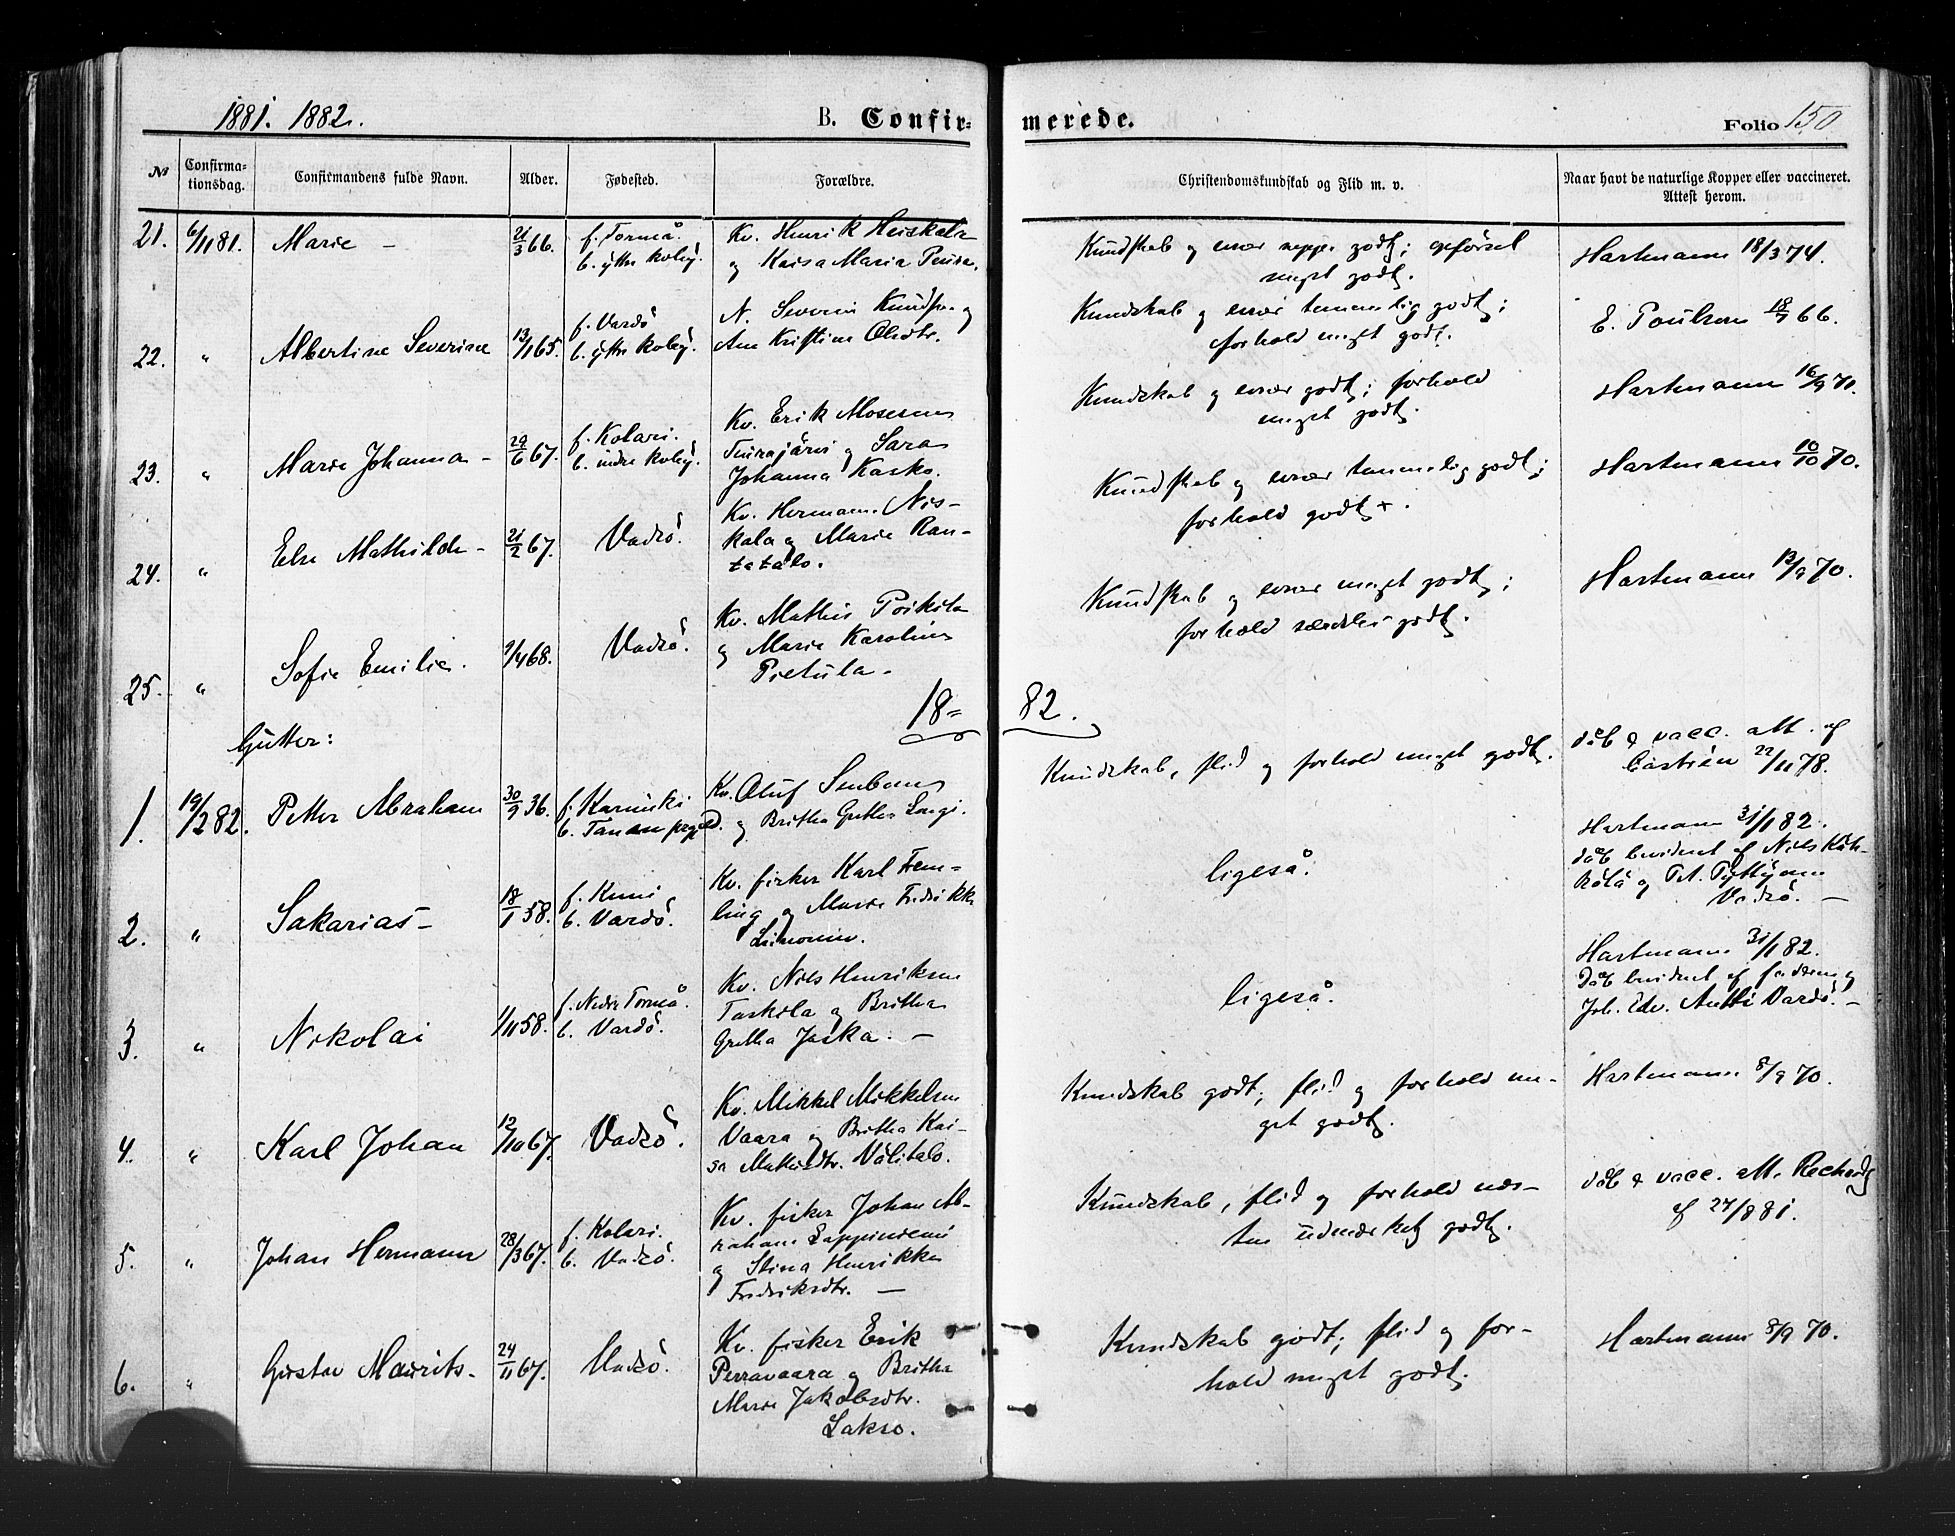 1881. 1882. B. Confir- merede. Folio 150
№ Confirma-tionsdag. Confirmandens fulde Navn. Alder. Fødested. Forældre. Christendomskundskab og Flid m. v. Naar havt de naturlige Kopper eller vaccineret. Attest herom.
21. 6/11 81. Marie - 21/3 66. f. Torneå. b. ytre kolby. Kv. Henrik Heiskala
og Kaisa Maria
Kundskab og evner neppe godt; opførsel
meget godt.
Hartmann 18/3 74.
22. " Albertine Severine 13/1 65. f. Vardö b. ytre kolby. N. Severin Knudsen og
Ane Kristine Olsdtr.
Kundskab og evner temmelig godt;
forhold meget godt.
E. Poulsen 18/7 66.
23. " Marie Johanna - 29/6 67. f. Kolari. b. indre kolby. Kv. Erik Mosesen
Teurajärvi og Sara
Johanna Kasko.
Kundskab og evner godt; forhold
meget godt.
Hartmann 16/9 70.
24. " Else Mathilde - 21/2 67. Vadsö. Kv. Herman Nis-
kala og Marie Ran-
tatalo.
Kundskab og evner temmelig godt;
forhold godt+.
Hartmann 10/10 70.
25. " Sofie Emilie. 9/4 68. Vadsö. Kv. Mathis Poikila
og Marie Karoline
Pietula -
Kundskab og evner meget godt;
forhold særdeles godt.
Hartmann 12/9 70.
18= 82.
Gutter:
1. 19/2 82. Petter Abraham 30/9 36. f. Karunki b. Tanen prgjeld. Kv. Oluf
og Britha Gretha Longi.
Kundskab, flid og forhold meget godt.
dåb & vacc. att. af
Castrén 22/11 78.
2. " Sakarias - 18/1 58. f. Kemi b. Vardö. Kv. fisker Karl Frem-
ling og Marie Fredrikke
ligeså.
Hartmann 31/1 82.
dåb bevidnet af Nils
og Vadsö. -
3. " Nikolai 1/11 58. f. Nedre Torneå. b. Vardö. Kv. Nils Henriksen
Taskila og Britha
Gretha Jaska. -
ligeså.
Hartmann 31/1 82.
Dåb bevidnet af og
Joh. Edv. Antti Vardö. -
4. " Karl Johan 12/10 67. Vadsö. Kv. Mikkel Mikkelsen
Vaara og Britha Kai-
sa Mathisdtr. Välitalo.
Kundskab godt; flid og forhold me-
get godt.
Hartmann 8/9 70.
5. " Johan Hermann 28/3 67. f. Kolari. b. Vadsö. Kv. fisker Johan Ab-
raham Lappiniemi
og Stina Henrikke
Fredriksdtr. -
Kundskab, flid og forhold næs-
ten udmerket godt.
dåb & vacc. att.
af 27/8 81.
6. " Gustav Maurits - 24/11 67. Vadsö. Kv. fisker Erik
Perravaara og Britha
Marie Jakobsdtr.
Lakso.
Kundskab godt; flid og for-
hold meget godt.
Hartmann 8/9 70.